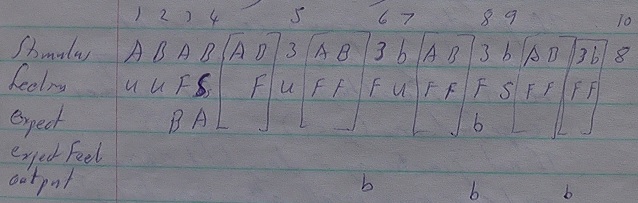 1 2 3 4 5 6 7 8 9 10
Stimulus A B A B [A B] 3 [A B] 3 b [A B] 3 b [A B] [3 b] 8
U U F S F U F F F U F F F S F F F F
Expect B A b
expect Feel
output b b b